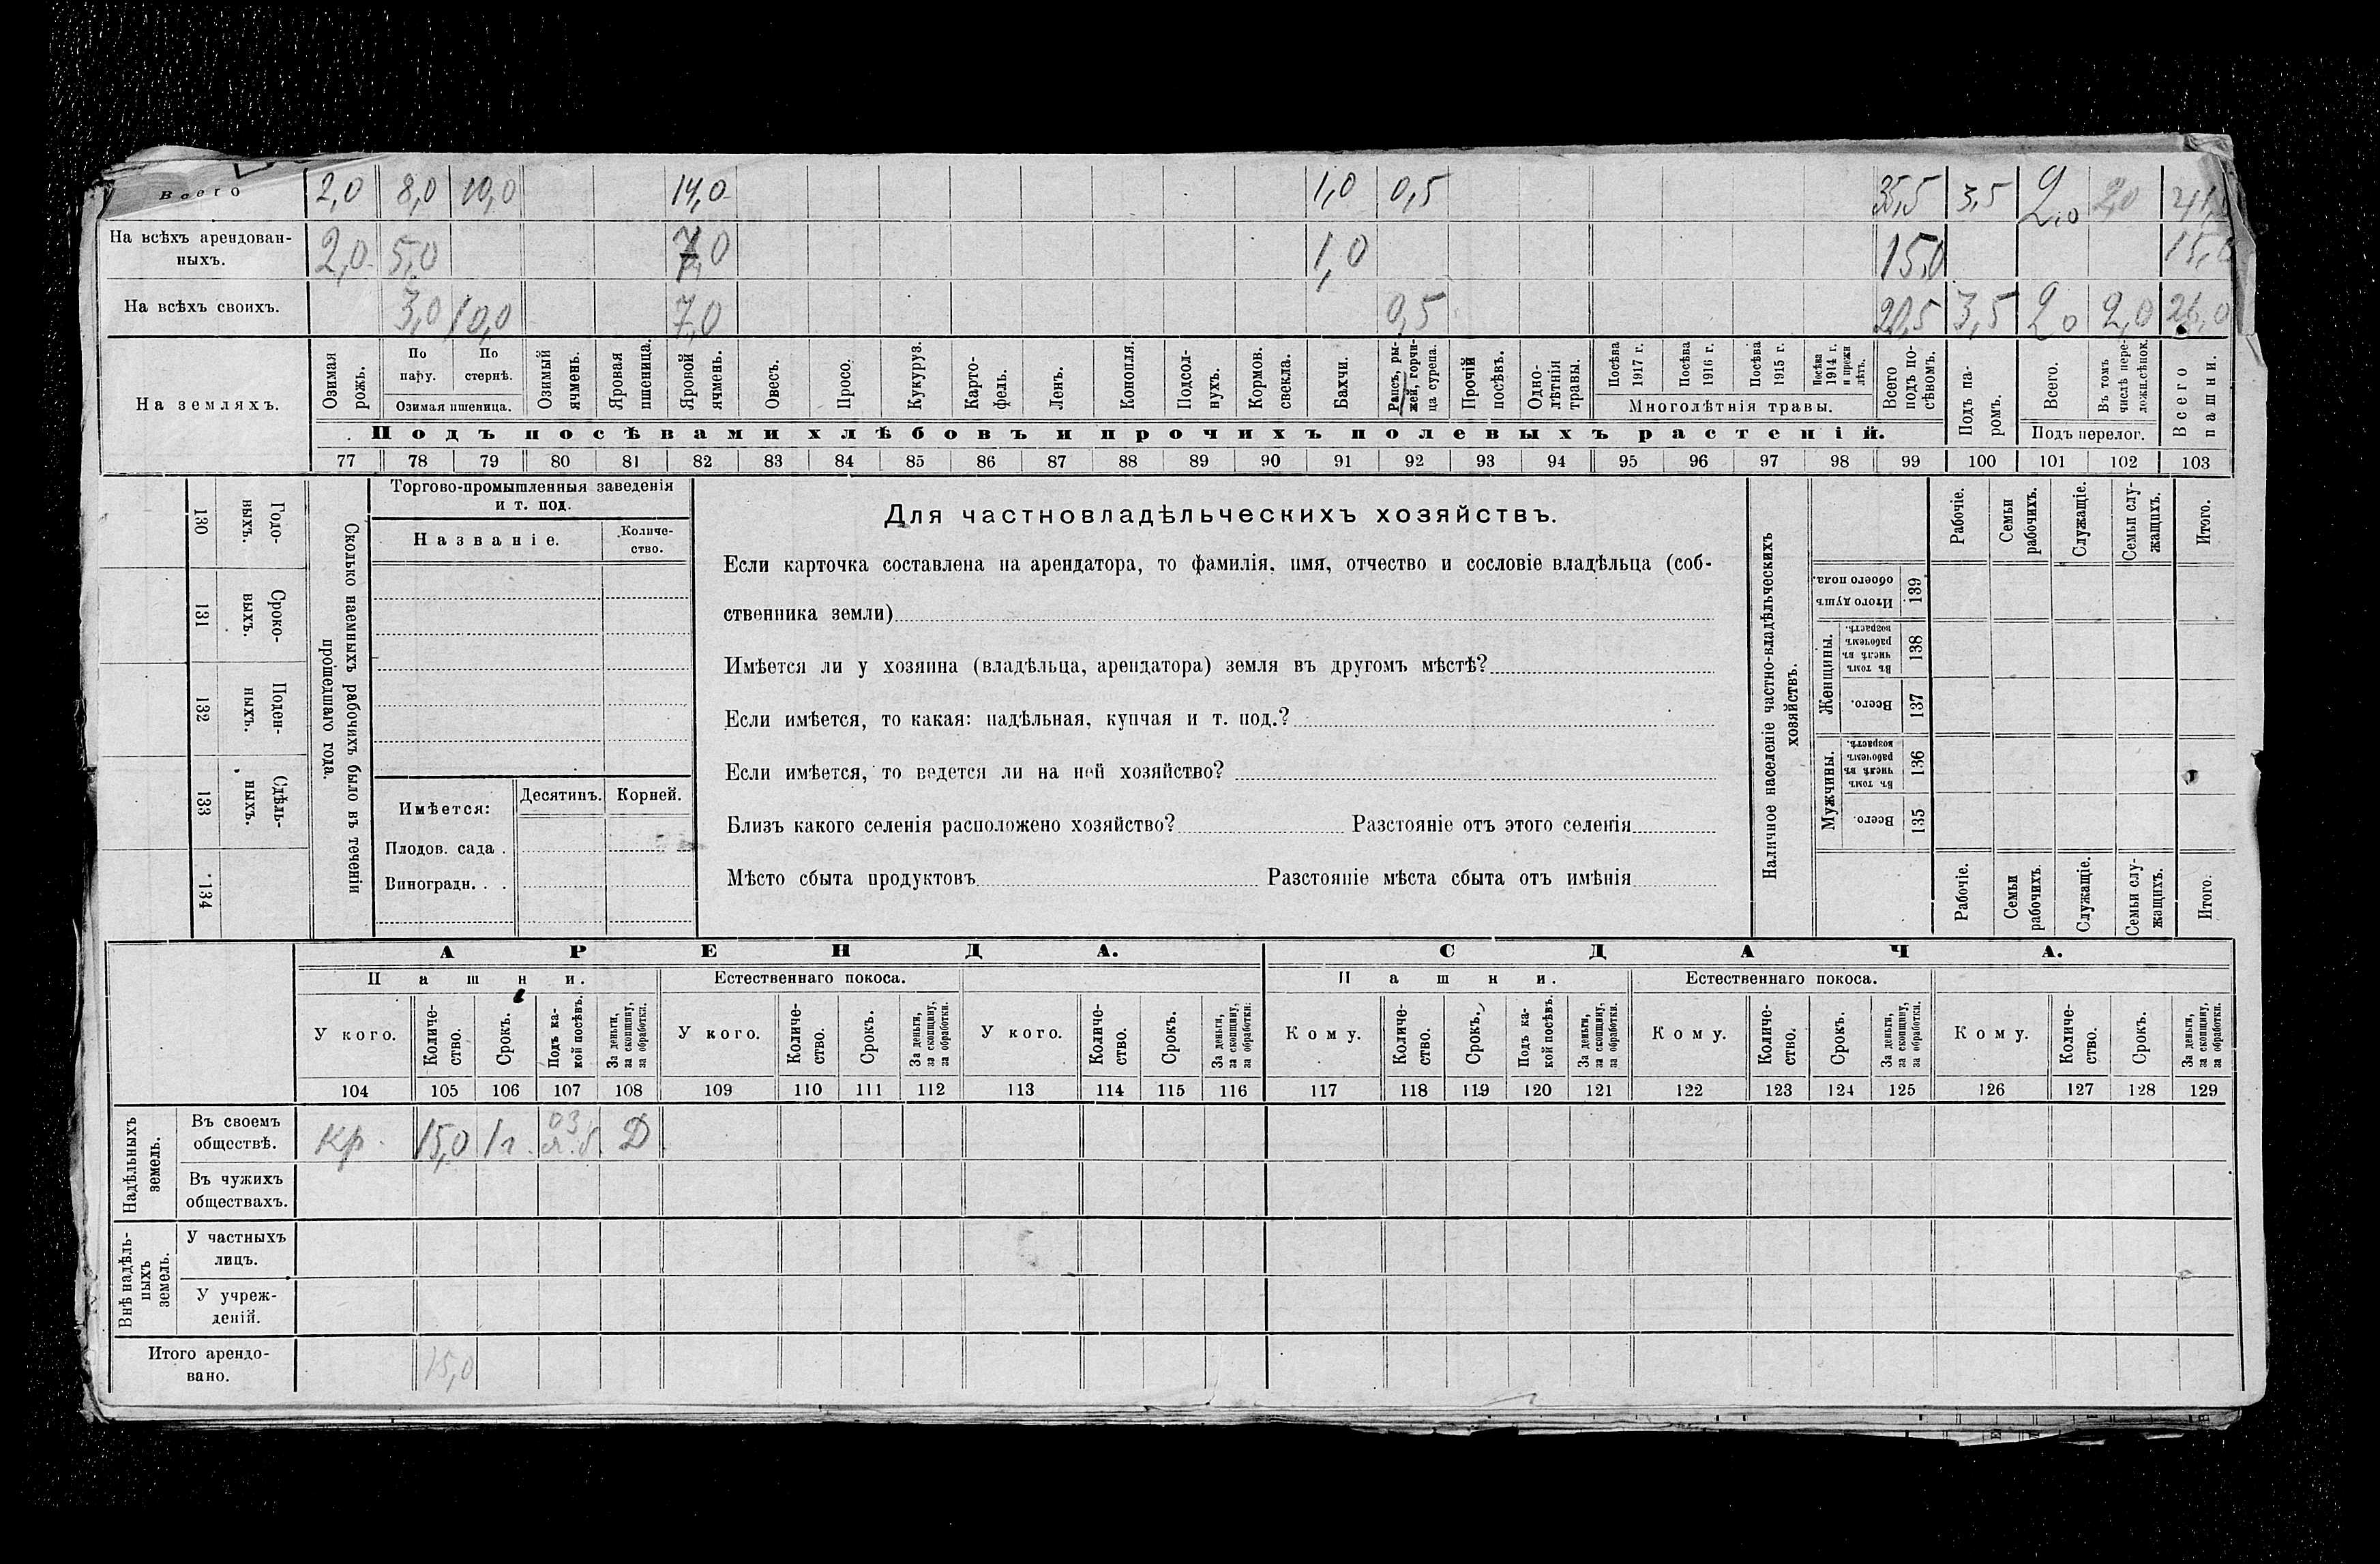 Всего 2,0 8,0 10,0 14,0 1,0 0,5 35,5 3,5 2,0 2,0
На всѣхъ арендован-
ныхъ. 2,0 5,0 7,0 1,0 15,0 15,0
На всѣхъ своихъ. 3,0 10,0 7,0 0,5 20,5 3,5 2,0 2,0 26,0
На земляхъ.
Озимая рожь.
По пару.
По стернѣ.
Озимая пшеница.
Озимый ячмень.
Яровая пшеница.
Яровой ячмень.
Овесъ.
Просо.
Кукуруз.
Карто-
фель.
Ленъ.
Конопля.
Подсол-
нухъ.
Кормов. свекла.
Бахчи.
Рапсъ, ры-
жей, горчи-
ца сурепа.
Прочій посѣвъ.
Одно-
лѣтнія травы.
Посѣва 1917 г.
Посѣва 1916 г.
Посѣва 1915 г.
Посѣва 1914 г. и прежн лѣтъ.
Многолѣтнія травы.
Всего подъ по-
сѣвомъ.
Подъ па-
ромъ.
Всего.
Въ томъ числѣ пере-
лежн.сѣнок.
Подъ перелог.
Всего пашни.
Подъ посѣвами хлѣбовъ и прочихъ полевыхъ растеній.
77 78 79 80 81 82 83 84 85 86 87 88 89 90 91 92 93 94 95 96 97 98 99 100 101 102 103
Годо-
выхъ.
130
Сроко-
выхъ.
131
Поден-
ныхъ.
132
Сдѣль-
ныхъ.
133
134
Сколько наемныхъ рабочихъ было въ теченіи
прошедшаго года.
Торгово-промышленныя заведенія
и т. под.
Названіе.
Количе-
ство.
Имѣется:
Десятинъ. Корней.
Плодов. сада .
Виноградн. . .
Для частновладѣльческихъ хозяйствъ.
Если карточка составлена на арендатора, то фамилія, имя, отчество и сословіе владѣльца (соб-
ственника земли)
Имѣется ли у хозяина (владѣльца, арендатора) земля въ другомъ мѣстѣ?
Если имѣется, то какая: надѣльная, купчая и т. под.?
Если имѣется, то ведется ли на ней хозяйство?
Близъ какого селенія расположено хозяйство? Разстояніе отъ этого селенія
Мѣсто сбыта продуктовъ Разстояніе мѣста сбыта отъ имѣнія
Наличное населеніе частно-владѣльческихъ
хозяйствъ.
Рабочіе.
Семьи рабочихъ.
Служащіе.
Семьи слу-
жащихъ.
Итого.
Итого душъ обоего пола.
139
Женщины.
Въ томъ числѣ въ рабочемъ возрастѣ.
138
Всего.
137
Мужчины.
Въ томъ числѣ въ рабочемъ возрастѣ.
136
Всего.
135
Рабочіе.
Семьи рабочихъ.
Служащіе.
Семьи слу-
жащихъ.
Итого.
АРЕНДА. СДАЧА.
Пашни. Естественнаго покоса. Пашни. Естественнаго покоса.
У кого.
Количе-
ство.
Срокъ.
Подъ ка-
кой посѣвъ.
За деньги, за скопщину, за обработки.
У кого.
Количе-
ство.
Срокъ.
За деньги, за скопщину, за обработки.
У кого.
Количе-
ство.
Срокъ.
За деньги, за скопщину, за обработки.
Кому.
Количе-
ство.
Срокъ.
Подъ ка-
кой посѣвъ.
За деньги, за скопщину, за обработки.
Кому.
Количе-
ство.
Срокъ.
За деньги, за скопщину, за обработки.
Кому.
Количе-
ство.
Срокъ.
За деньги, за скопщину, за обработки.
104 105 106 107 108 109 110 111 112 113 114 115 116 117 118 119 120 121 122 123 124 125 126 127 128 129
Надѣльныхъ
земель.
Въ своемъ
обществѣ. Кр. 15,0 1г. оз Д
Въ чужихъ
обществахъ.
Внѣ надѣль-
ныхъ
земель.
У частныхъ
лицъ.
У учреж-
деній.
Итого арендо-
вано. 15,0